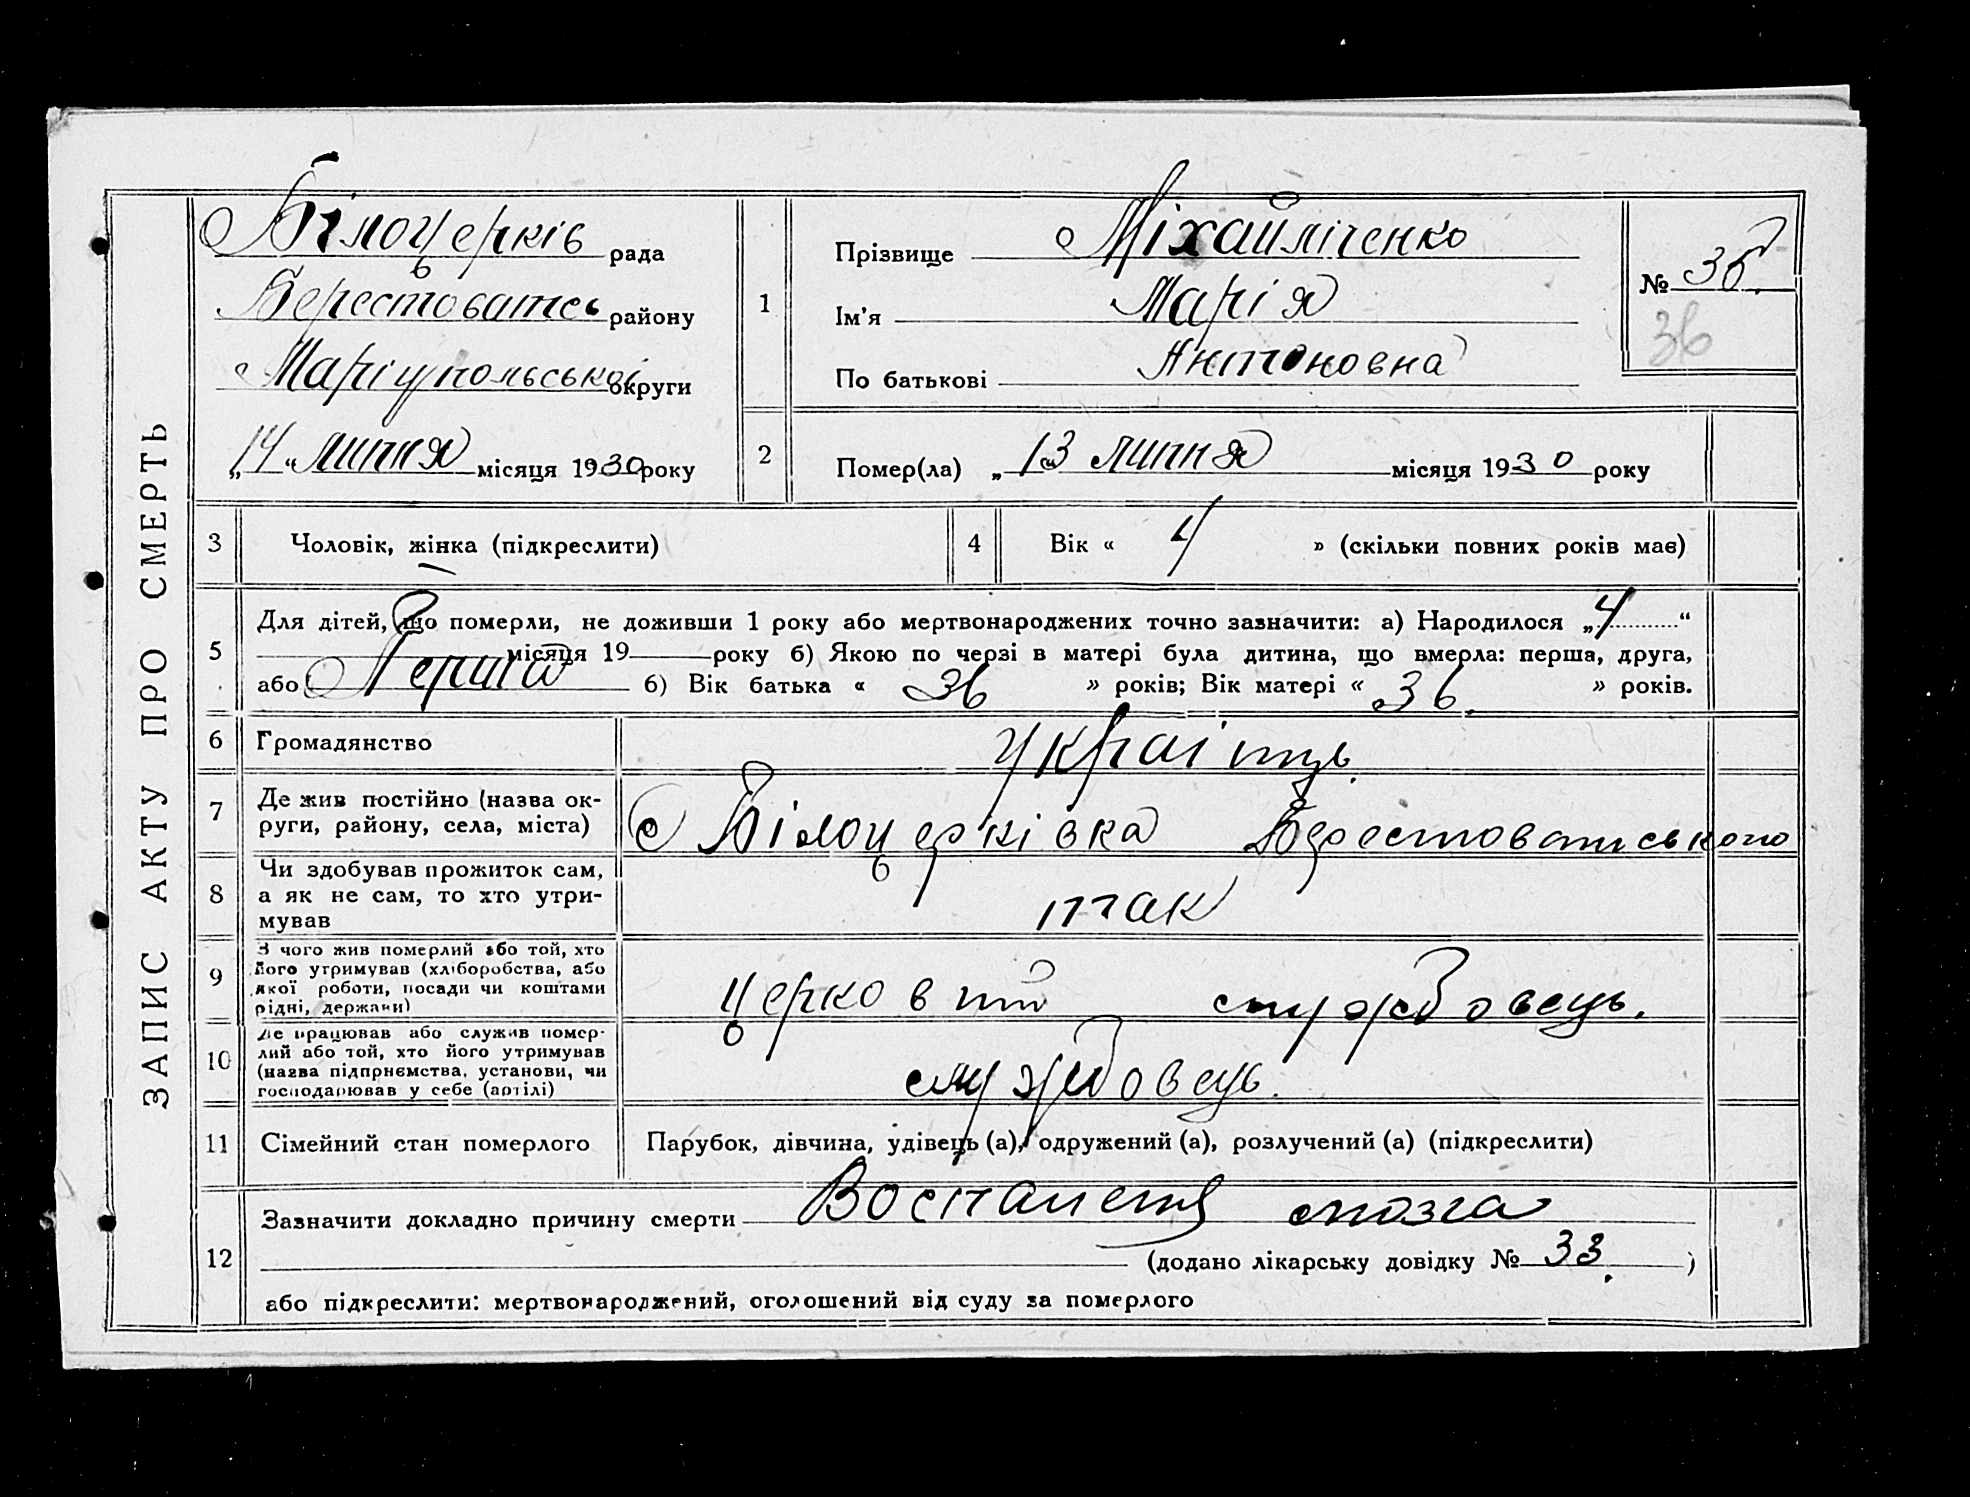 ЗАПИС АКТУ ПРО СМЕРТЬ
Білоцерків рада
Берестоватсь району
Маріупольської округи
„14“ липня місяця 1930 року
1
Прізвище Міхайліченко
Ім'я Марія
По батькові Антоновна
№ 36.
36
2
Помер(ла) „13 липня місяця 1930 року
3 Чоловік, жінка (підкреслити)
4 Вік « 4 » (скільки повних років має)
5
Для дітей, що померли, не доживши 1 року або мертвонароджених точно зазначити: а) Народилося „4“
місяця 19 року б) Якою по черзі в матері була дитина, що вмерла: перша, друга,
або Перша б) Вік батька « 36 » років; Вік матері « 36. » років.
6 Громадянство
7 Де жив постійно (назва ок-
руги, району, села, міста)
с Білоцерківка Берестоватського
8 Чи здобував прожиток сам,
а як не сам, то хто утри-
мував
так
9 З чого жив померлий або той, хто
його утримував (хліборобства, або
якої роботи, посади чи коштами
рідні, держави)
службовець.
10 Де працював або служив помер-
лий або той, хто його утримував
(назва підприємства, установи, чи
господарював у себе (артілі)
службовець.
11 Сімейний стан померлого
Парубок, дівчина, удівець (а), одружений (а), розлучений (а) (підкреслити)
12
Зазначити докладно причину смерти мозга
(додано лікарську довідку № 33. )
або підкреслити: мертвонароджений, оголошений від суду за померлого